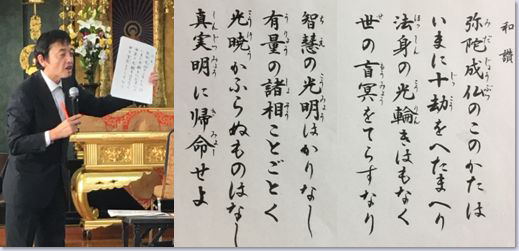 和讃
弥陀成仏のこのかたは
いまに十劫をへたまへり
法身の光輪きはもなく
世の盲冥をてらすなり
智慧の光明はかりなし
有量の諸相ことごとく
光暁かふらぬものはなし
真実明に帰命せよ